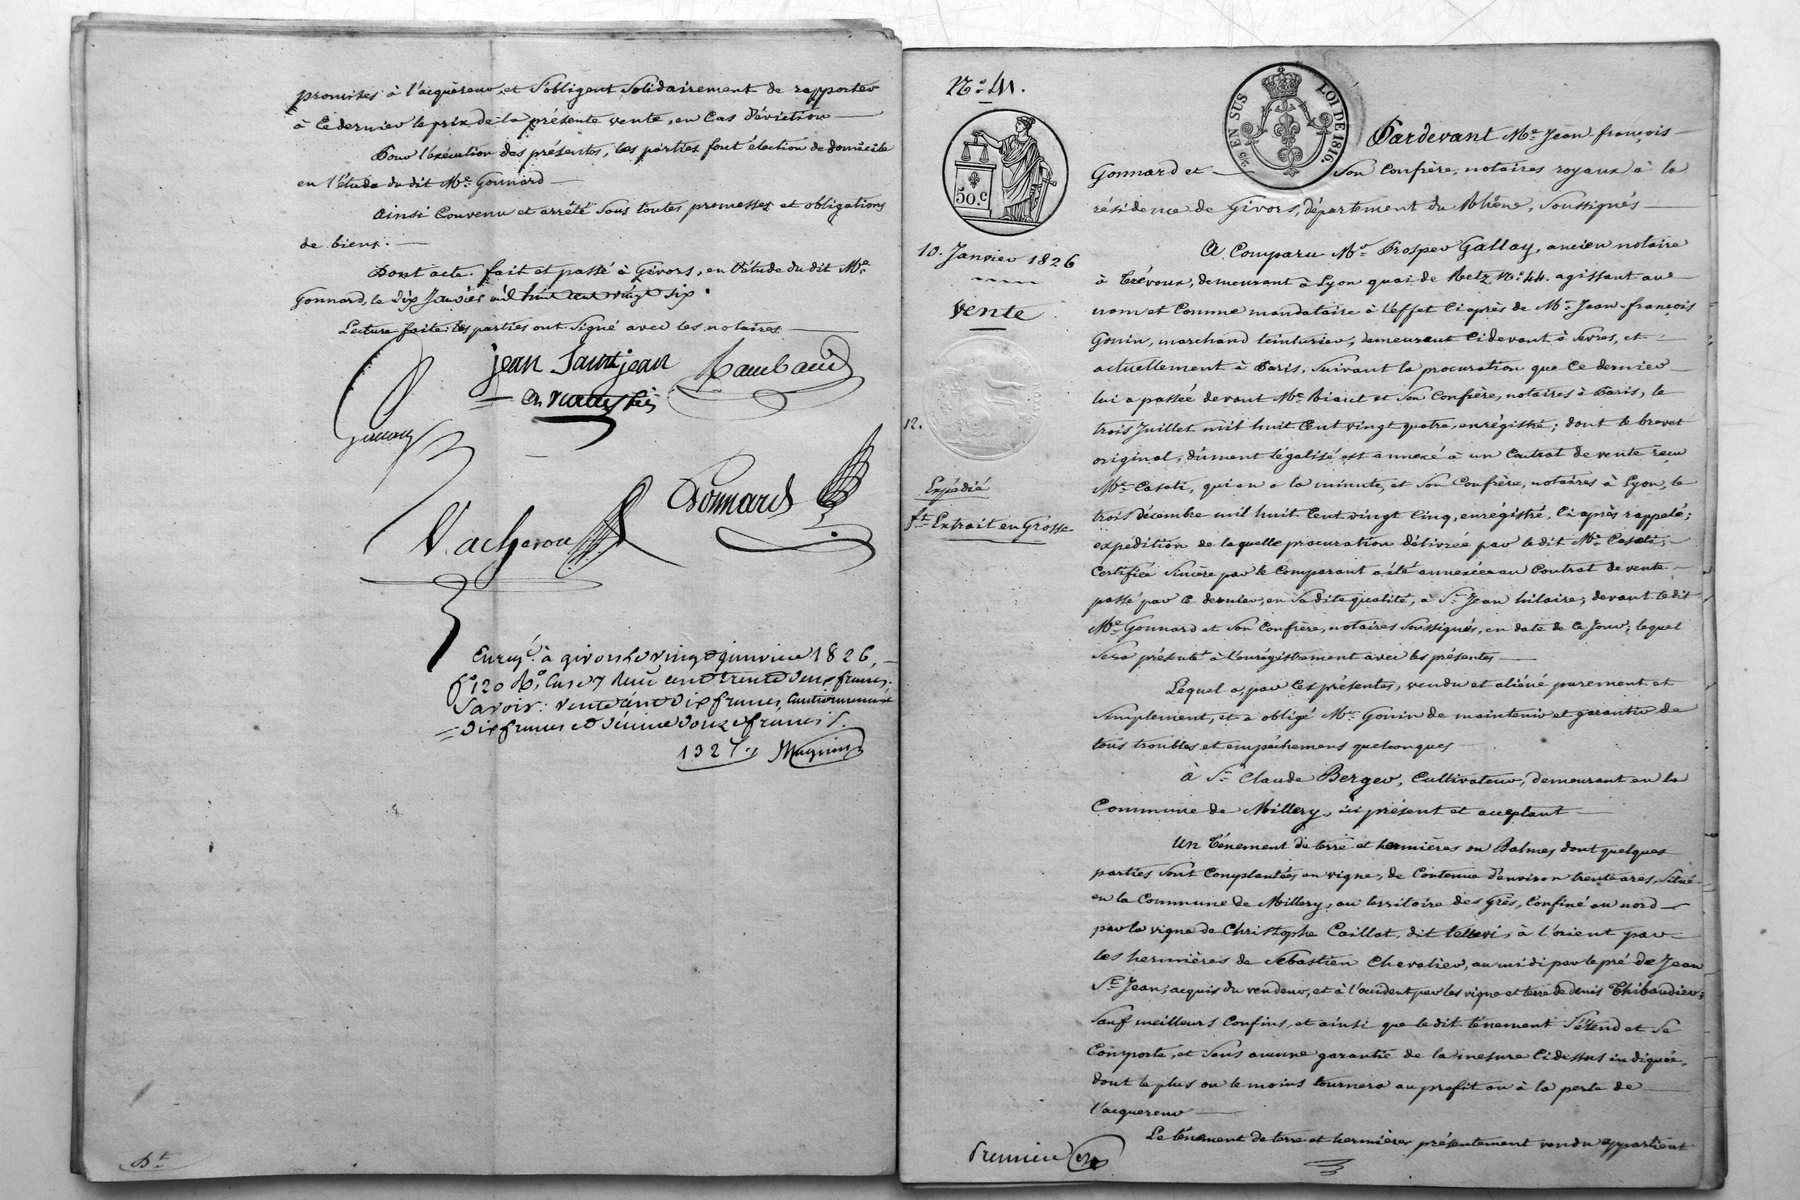 promises à l'acquéreur, et s'obligent solidairement de rapporter
à ce dernier le prix de la présente vente, en cas d'éviction
Pour l'exécution des présentes, les parties font élection de domicile
en l'étude du dit Me. Gonnard
Ainsi convenu et arrêté sous toutes promesses et obligations
de biens.
Dont acte. fait et passé à Givors, en l'étude du dit Me.
Gonnard, le dix Janvier mil huit cent vingt six.
Lecture faite, les parties ont signé avec les notaires
jean Saint jean Rambaud
Gonnard
Vacheron
Enregé. à givors le vingt janvier 1826,
fo 120 Ro. Case 7 Reçu cent trente deux francs.
Savoir: vente cent dix francs, cautionnement
dix francs et dixième douze francs.
132 f. Magnin
Bt
No. 41.
50.c
EN SUS LOI DE 1816.
10. Janvier 1826
Vente
12.
Expédié
ft. Extrait en Grosse
Pardevant Me. Jean françois
Gonnard et son confrère, notaires royaux à la
résidence de Givors, département du Rhône, soussignés
A Comparu Mr. Prosper Gallay, ancien notaire
à Trévoux, demeurant à Lyon quai de Retz No. 44. agissant au
nom et comme mandataire à l'effet ci après de Mr. Jean-françois
Gonin, marchand teinturier, demeurant ci devant à Sevres, et
actuellement à Paris, suivant la procuration que ce dernier
lui a passée devant Me. et son confrère, notaires à Paris, le
trois Juillet mil huit cent vingt quatre, enrégistré; dont le brevet
original, dûment légalisé est annexé à un contrat de vente reçu
Me. Casati, qui en a la minute, et son confrère, notaires à Lyon, le
trois décembre mil huit cent vingt cinq, enrégistré, ci après rappelé;
expédition de laquelle procuration délivrée par le dit Me. Casati,
certifiée sincère par le comparant a été annexée au contrat de vente
passé par ce dernier, en sa dite qualité, à Sr. Jean hilaire, devant le dit
Me. Gonnard et son confrère, notaires soussignés, en date de ce jour, lequel
sera présenté à l'enrégistrement avec les présentes
Lequel a, par ces présentes, vendu et aliéné purement et
simplement, et a obligé Mr. Gonin de maintenir et garantir de
tous troubles et empêchemens quelconques
à Sr. Claude Berger, Cultivateur, demeurant en la
Commune de Millery, ici présent et acceptant
Un tènement de terre et hermières ou Balmes dont quelques
parties sont complantées en vigne, de contenue d'environ trente ares, situé
en la Commune de Millery, au territoire des Grès, confiné au nord
par la vigne de Christophe Caillot, dit, à l'orient par
les hermières de Sébastien Chevalier, au midi par le pré de Jean
St. Jean, acquis du vendeur, et à l'occident par les vigne et terre de denis Thibaudier;
sauf meilleurs confins, et ainsi que le dit tènement s'étend et se
comporte, et sans aucune garantie de la mesure ci dessus indiquée,
dont le plus ou le moins tournera au profit ou à la perte de
l'acquéreur
Le tènement de terre et hermières présentement vendu appartient
Premier